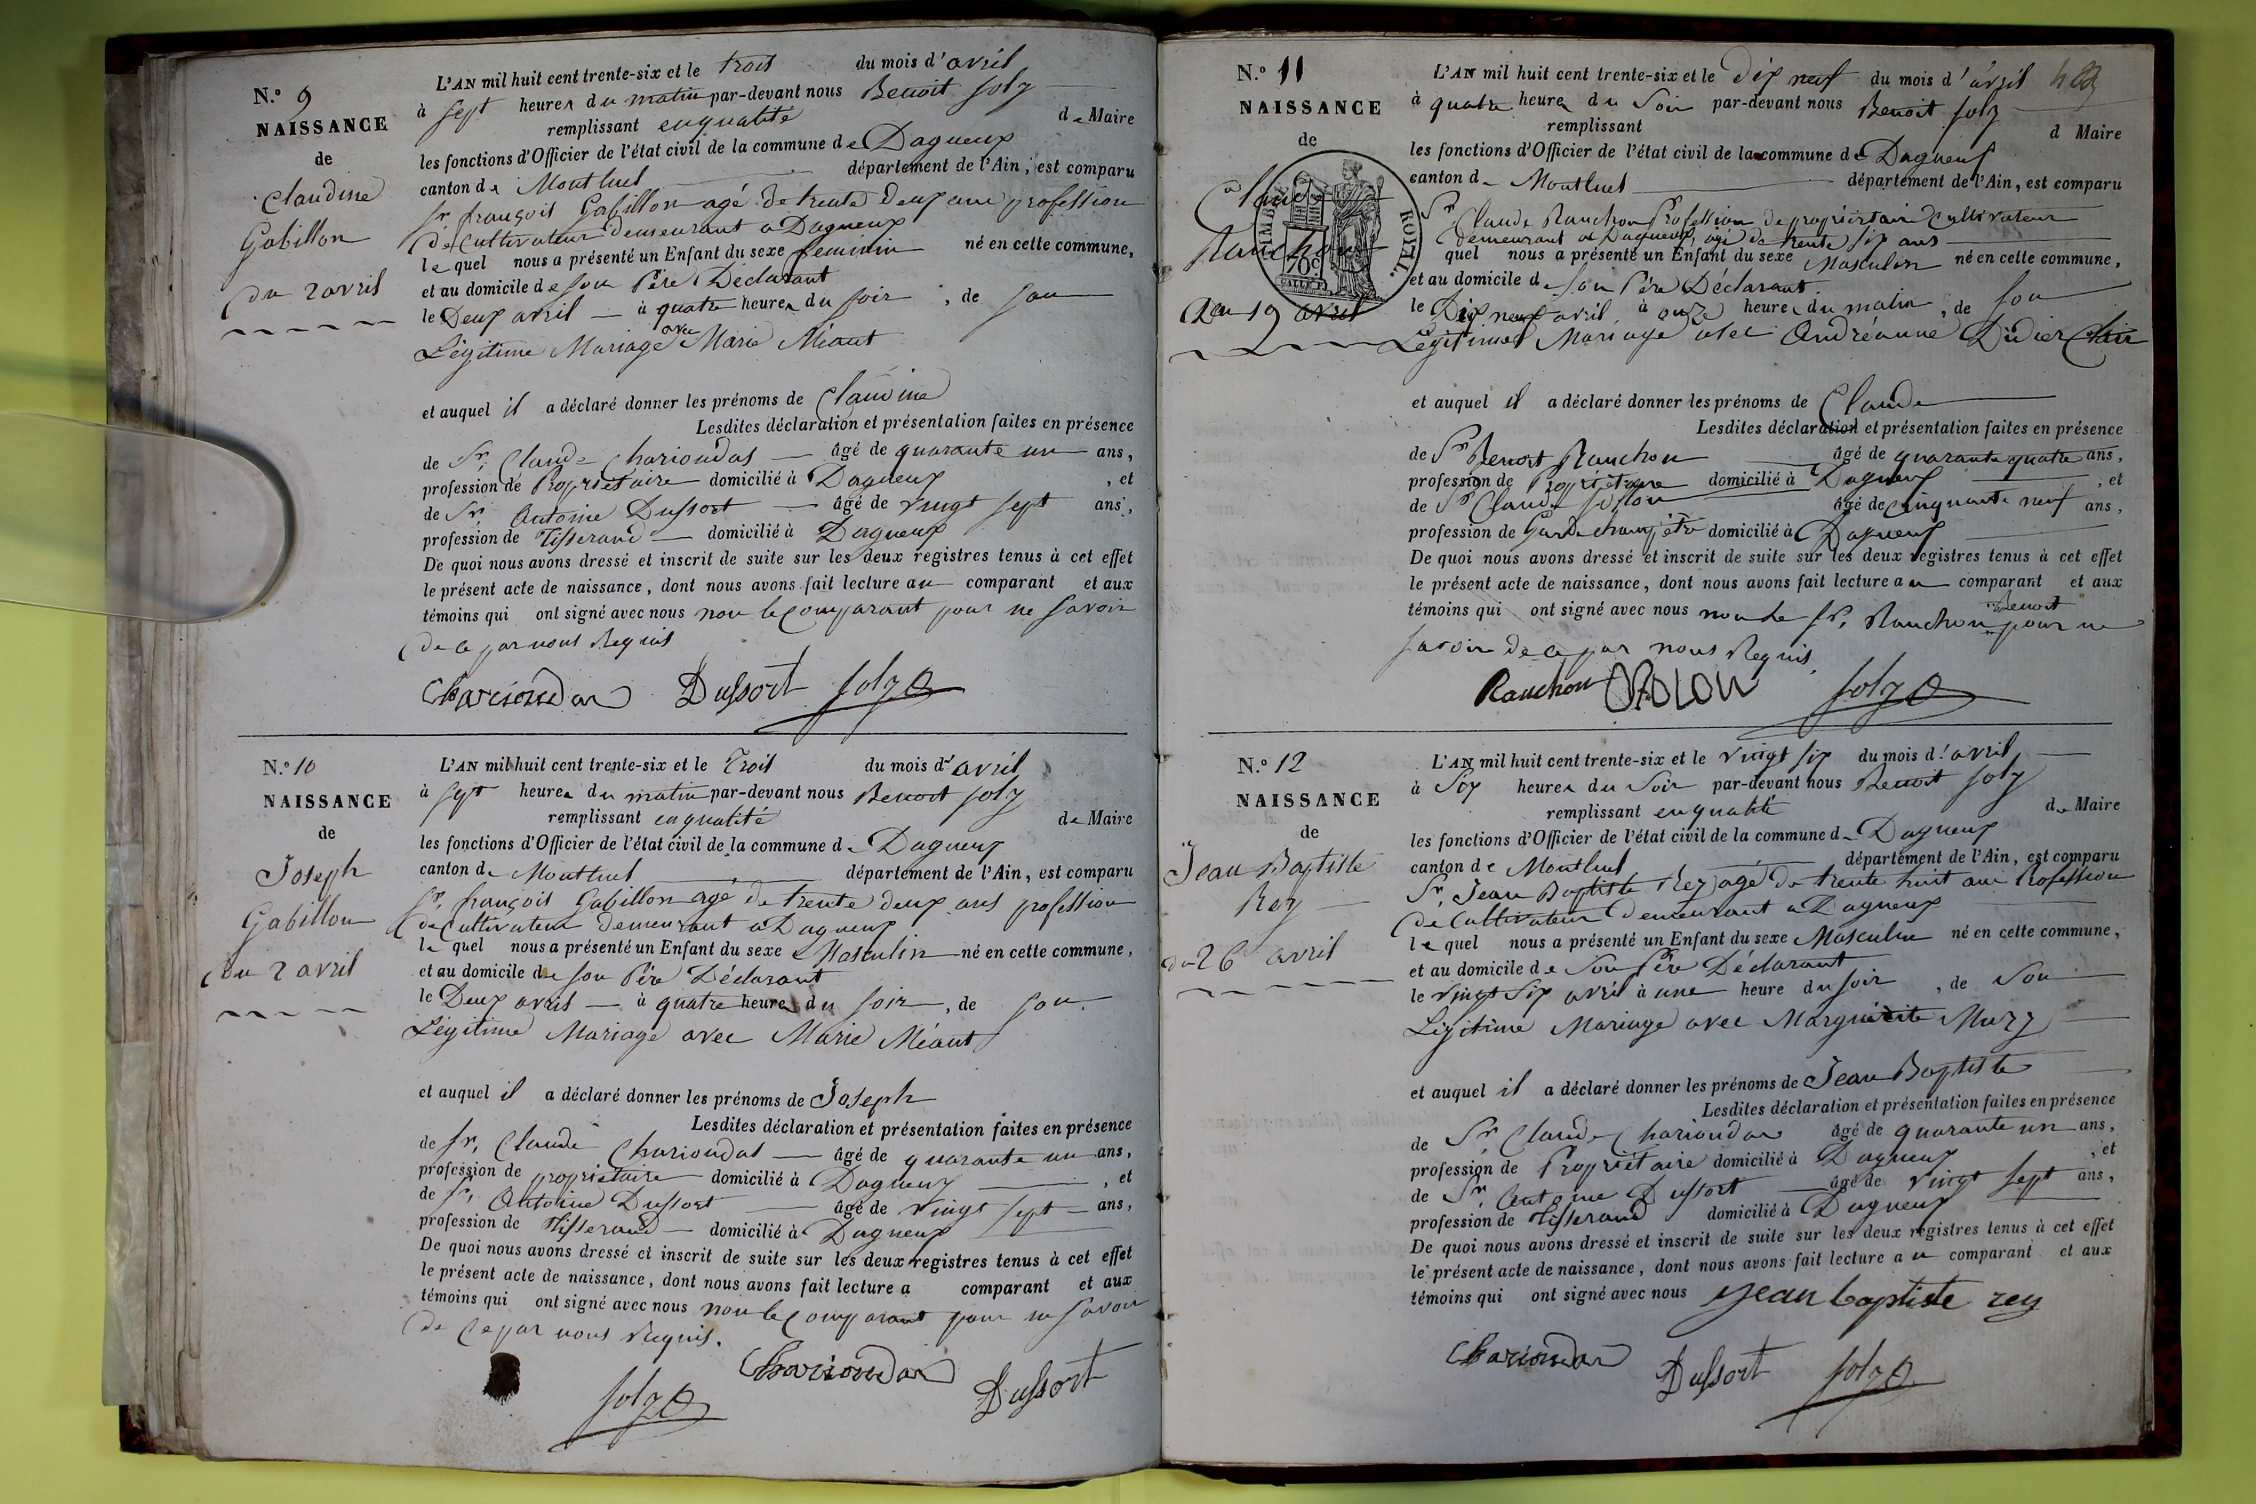 N.º 9
NAISSANCE
de
Claudine
Gabillon
du 2 avril
L'AN mil huit cent trente-six et le trois du mois d'avril
à sept heures du matin par-devant nous Benoit Joly
remplissant en qualité de Maire
les fonctions d'Officier de l'état civil de la commune de Dagneux
canton de Montluel département de l'Ain, est comparu
Sr. françois Gabillon agé de trente deux ans profession
de Cultivateur demeurant a Dagneux
lequel nous a présenté un Enfant du sexe feminin né en cette commune,
et au domicile de son Père Déclarant
le Deux avril à quatre heures du soir, de son
Légitime Mariage avec Marie Méant
et auquel il a déclaré donner les prénoms de Claudine
Lesdites déclaration et présentation faites en présence
de Sr. Claude Chariondas âgé de quarante un ans,
profession de Propriétaire domicilié à Dagneux, et
de Sr. Antoine Dussort âgé de vingt sept ans,
profession de Tisserand domicilié à Dagneux
De quoi nous avons dressé et inscrit de suite sur les deux registres tenus à cet effet
le présent acte de naissance, dont nous avons fait lecture au comparant et aux
témoins qui ont signé avec nous non le comparant pour ne savoir
de ce par nous Requis
Chariondas Dussort Joly
N.º 10
NAISSANCE
de
Joseph
Gabillon
du 2 avril
L'AN mil huit cent trente-six et le Trois du mois d'avril
à sept heures du matin par-devant nous Benoit Joly
remplissant en qualité de Maire
les fonctions d'Officier de l'état civil de la commune de Dagneux
canton de Montluel département de l'Ain, est comparu
Sr. françois Gabillon agé de trente deux ans profession
de Cultivateur demeurant a Dagneux
lequel nous a présenté un Enfant du sexe Masculin né en cette commune,
et au domicile de son Père Déclarant
le Deux avril à quatre heures du soir, de son
Légitime Mariage avec Marie Méant
et auquel il a déclaré donner les prénoms de Joseph
Lesdites déclaration et présentation faites en présence
de Sr. Claude Chariondas âgé de quarante un ans,
profession de propriétaire domicilié à Dagneux, et
de Sr. Antoine Dussort âgé de vingt sept ans,
profession de Tisserand domicilié à Dagneux
De quoi nous avons dressé et inscrit de suite sur les deux registres tenus à cet effet
le présent acte de naissance, dont nous avons fait lecture a comparant et aux
témoins qui ont signé avec nous non le comparant pour ne savoir
de ce par nous Requis.
Joly Chariondas Dussort
N.º 11
NAISSANCE
de
Claude
Ranchon
Du 19 avril
TIMBRE ROYAL
70 c
L'AN mil huit cent trente-six et le Dix neuf du mois d'avril
à quatre heures du Soir par-devant nous Benoit Joly
remplissant d Maire
les fonctions d'Officier de l'état civil de la commune de Dagneux
canton de Montluel département de l'Ain, est comparu
Sr. Claude Ranchon Profession de propriétaire Cultivateur
demeurant a Dagneux, agé de trente six ans
quel nous a présenté un Enfant du sexe Masculin né en cette commune,
et au domicile de son Père Déclarant.
le Dix neuf avril à onze heures du matin, de son
Légitime Mariage avec Andréanne Didier Clair
et auquel il a déclaré donner les prénoms de Claude
Lesdites déclaration et présentation faites en présence
de Sr Benoit Ranchon âgé de quarante quatre ans,
profession de Propriétaire domicilié à Dagneux, et
de Sr Claude âgé de cinquante neuf ans,
profession de Garde champêtre domicilié à Dagneux
De quoi nous avons dressé et inscrit de suite sur les deux registres tenus à cet effet
le présent acte de naissance, dont nous avons fait lecture au comparant et aux
témoins qui ont signé avec nous non le Sr. Ranchon Benoit pour ne
savoir de ce par nous Requis.
Ranchon Joly
N.º 12
NAISSANCE
de
Jean Baptiste
Rey
du 26 avril
L'AN mil huit cent trente-six et le vingt six du mois d'avril
à Six heures du Soir par-devant nous Benoit Joly
remplissant en qualité de Maire
les fonctions d'Officier de l'état civil de la commune de Dagneux
canton de Montluel département de l'Ain, est comparu
Sr. Jean Baptiste Rey agé de trente huit ans Profession
de Cultivateur demeurant a Dagneux
lequel nous a présenté un Enfant du sexe Masculin né en cette commune,
et au domicile de Son Père Déclarant
le vingt Six avril à une heure du soir, de Son
Légitime Mariage avec Marguerite Mury
et auquel il a déclaré donner les prénoms de Jean Baptiste
Lesdites déclaration et présentation faites en présence
de Sr Claude Chariondas âgé de quarante un ans,
profession de Propriétaire domicilié à Dagneux, et
de Sr Antoine Dussort âgé de vingt sept ans,
profession de Tisserand domicilié à Dagneux
De quoi nous avons dressé et inscrit de suite sur les deux registres tenus à cet effet
le présent acte de naissance, dont nous avons fait lecture au comparant et aux
témoins qui ont signé avec nous jean baptiste rey
Chariondas Dussort Joly